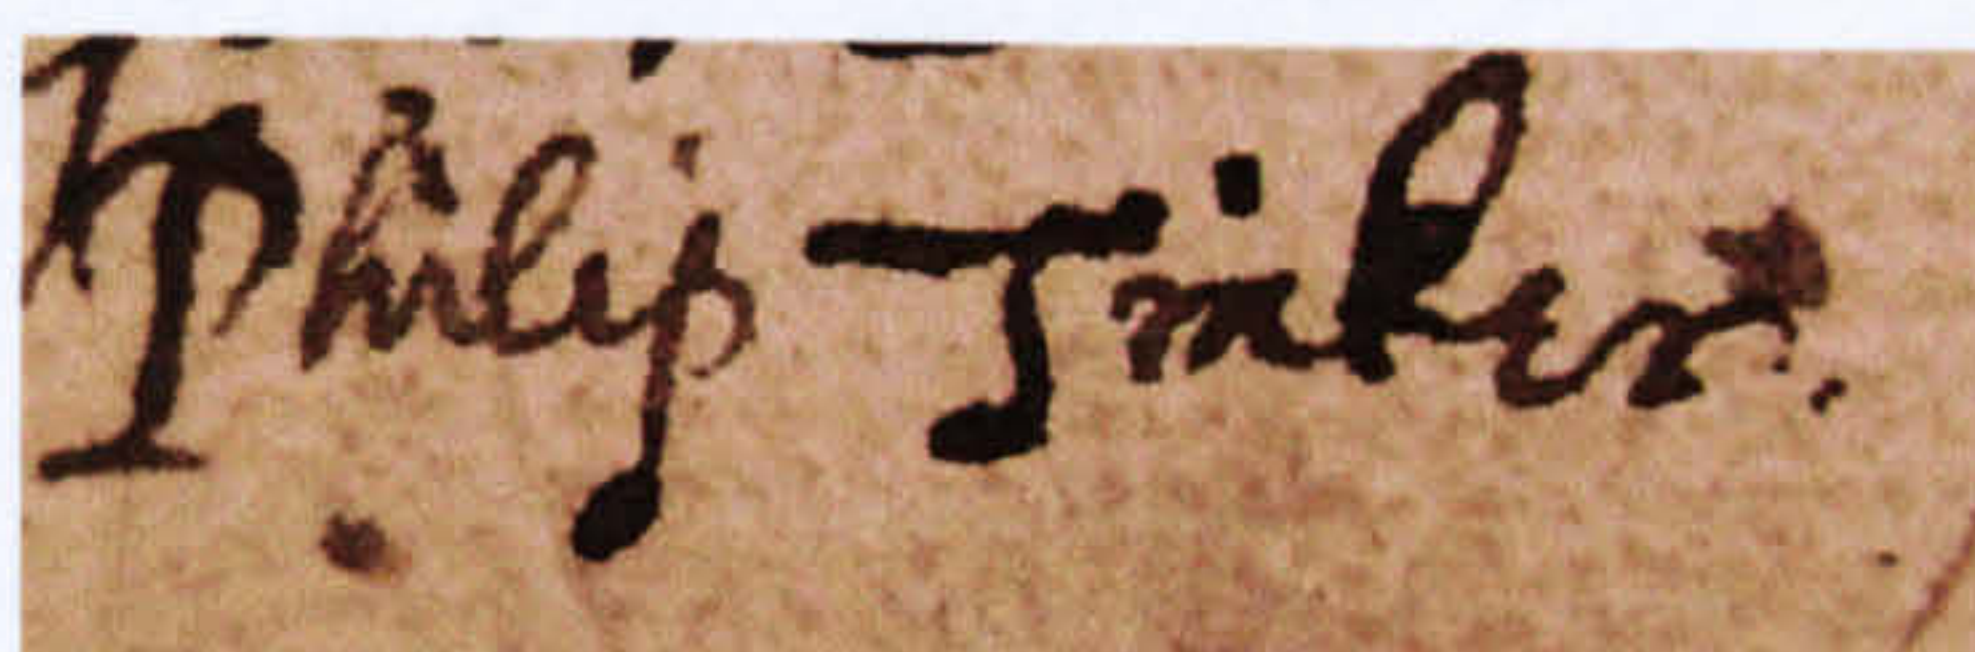 Philip Tinker.